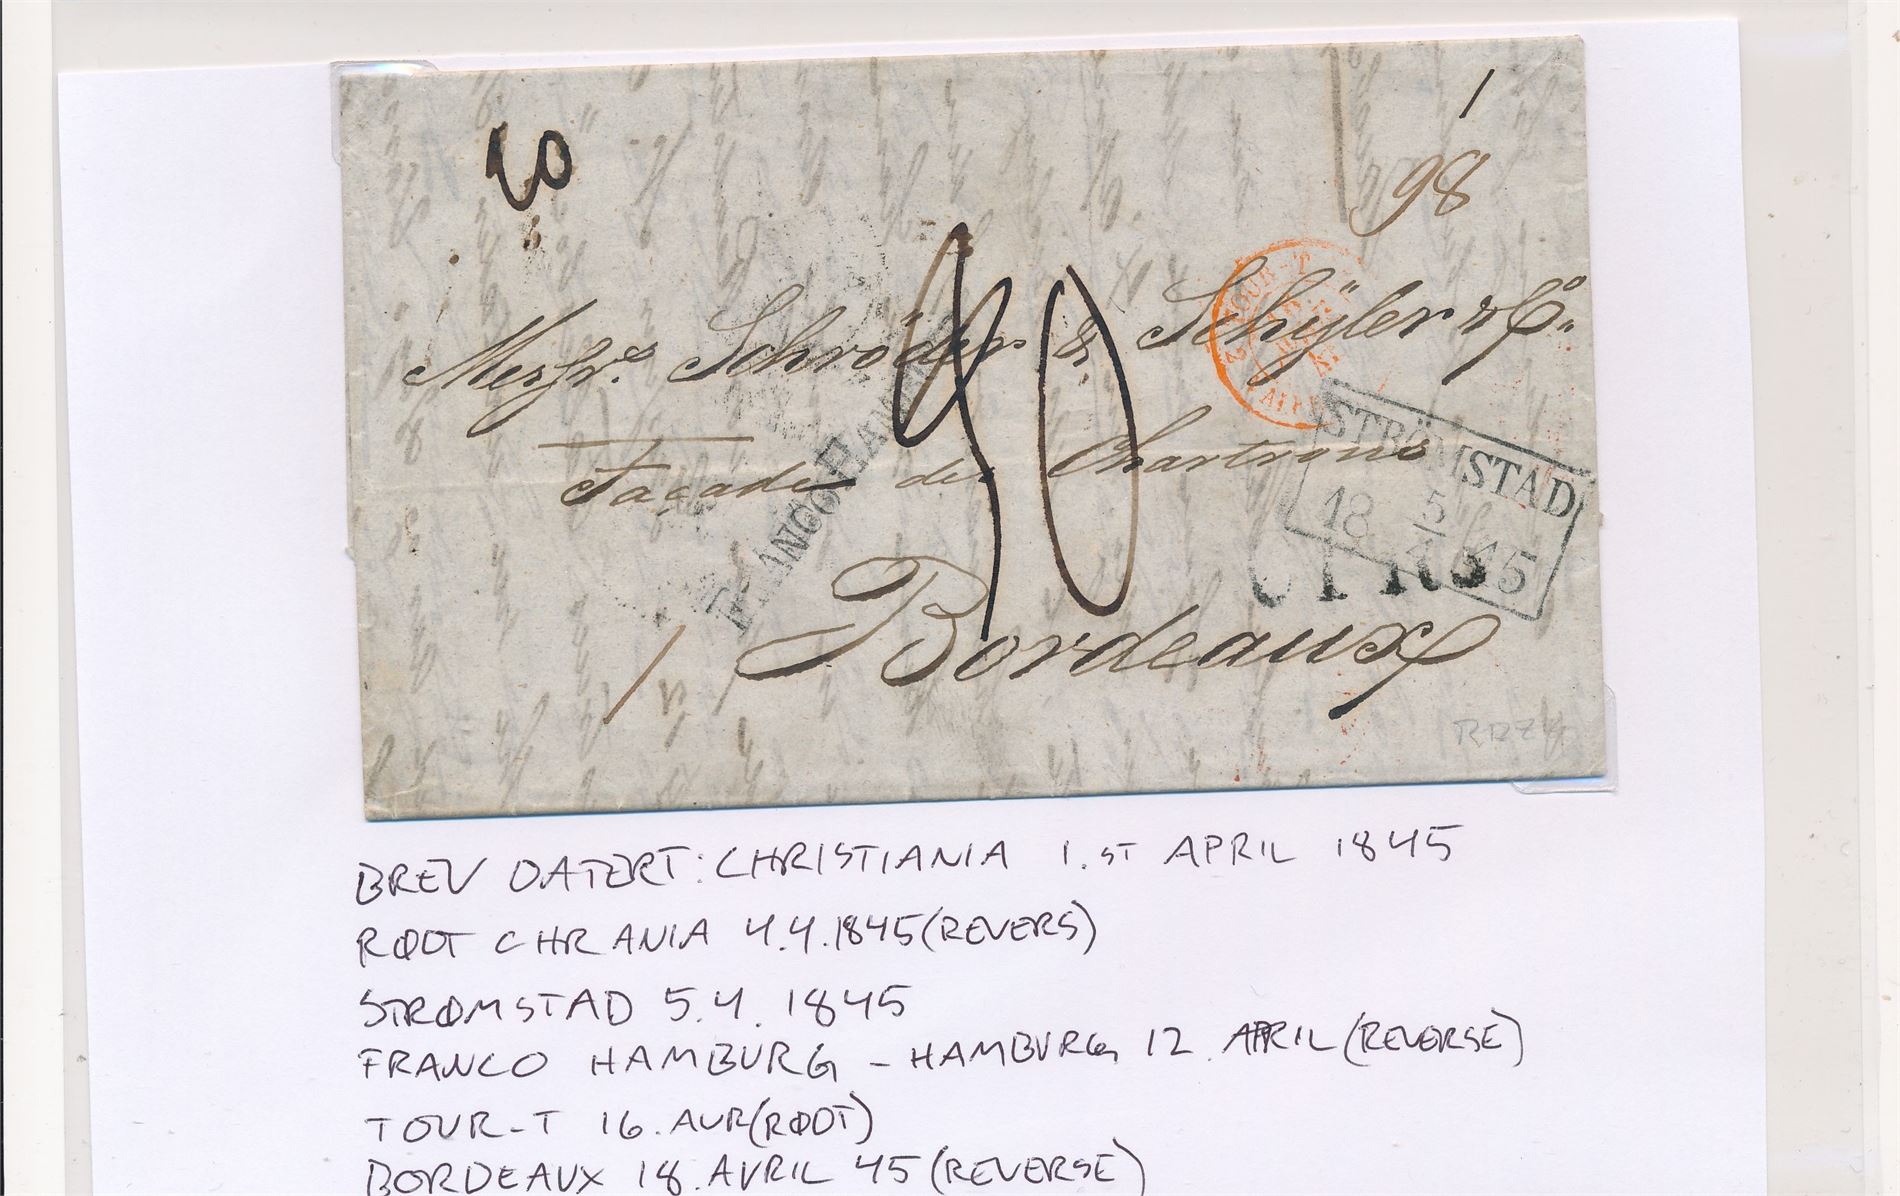 20
1
98
Messrs. Schröder & Schÿler & Co.
Façade des Chartrons
Bordeaux
90
TOUR-T
FRANCO HAM
STRÖMSTAD
18 5/4 45
BREV DATERT: CHRISTIANIA 1.ST APRIL 1845
RØDT CHRANIA 4.4.1845 (REVERS)
STRØMSTAD 5.4. 1845
FRANCO HAMBURG - HAMBURG 12. APRIL (REVERSE)
TOUR-T 16. AVR (RØDT)
BORDEAUX 18. AVRIL 45 (REVERSE)